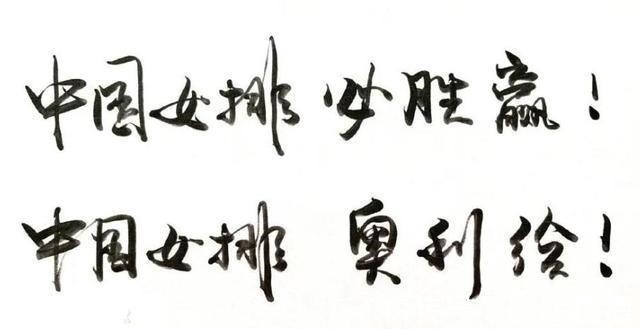 中国女排 必胜赢!
中国女排 奥利给!